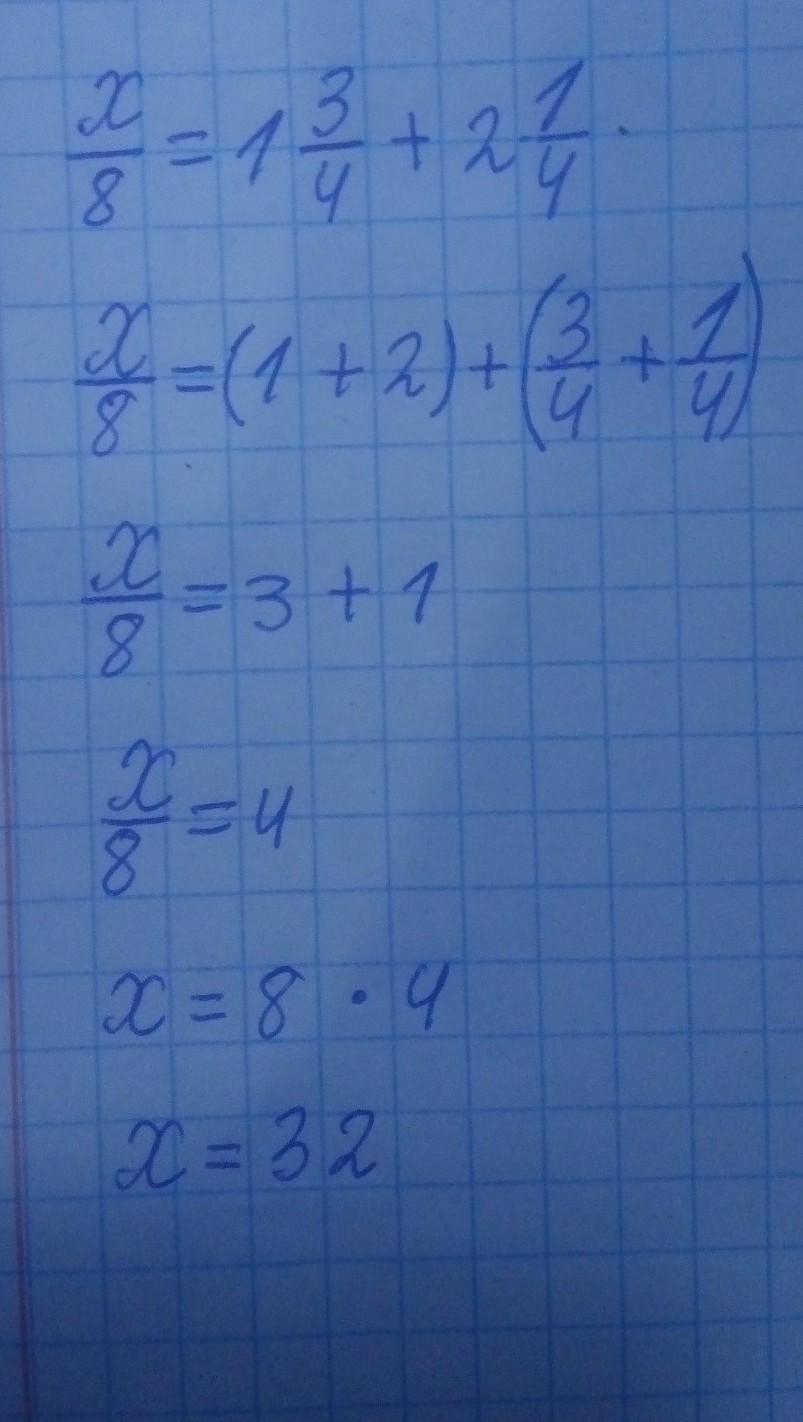 x/8 = 1 3/4 + 2 1/4 .
x/8 = (1 + 2) + (3/4 + 1/4)
x/8 = 3 + 1
x/8 = 4
x = 8 · 4
x = 32